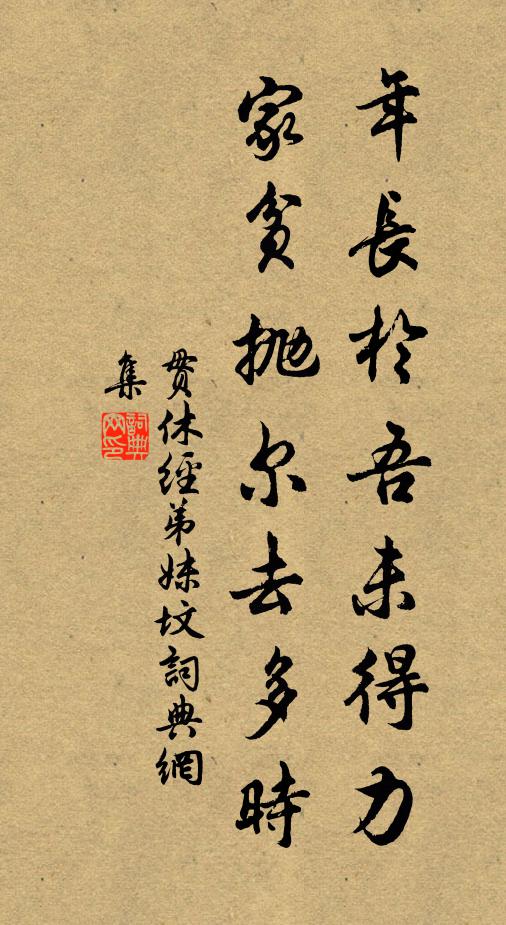 年長於吾未得力
家貧抛尔去多時
貫休經弟妹坟詞典網
集
詞典網印